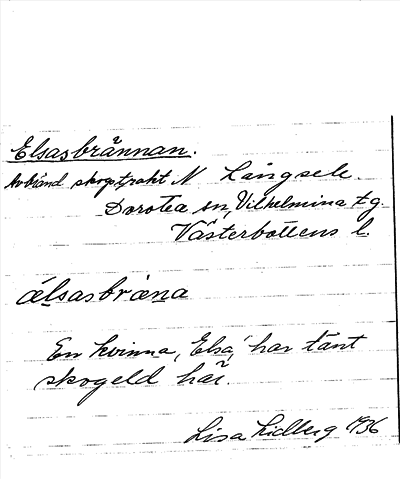 Elsasbrännan.
Avbränd skogstrakt N Långsele
Dorotea sn, Vilhelmina tg.
Västerbottens l.
älsasbräna
En kvinna, Elsa, har tänt
skogeld här.
Lisa Lidberg 1936